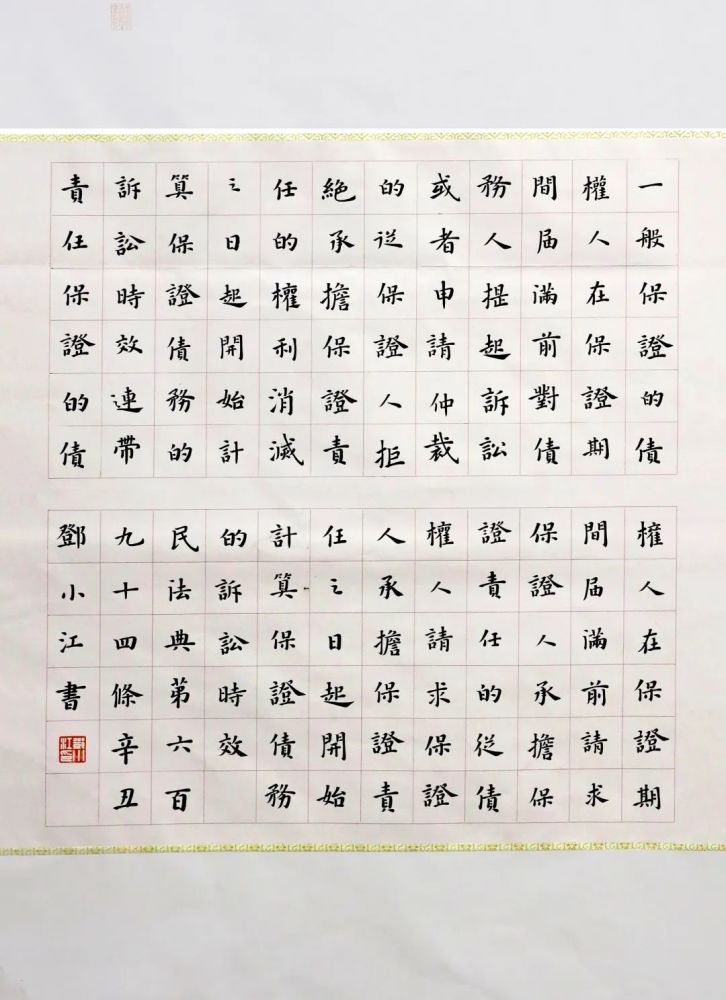 一般保證的債
權人在保證期
間届滿前對債
務人提起訴訟
或者申請仲裁
的從保證人拒
絕承擔保證責
任的權利消滅
之日起開始計
算保證債務的
訴訟時效連帶
責任保證的債
權人在保證期
間届滿前請求
保證人承擔保
證責任的從債
權人請求保證
人承擔保證責
任之日起開始
計算保證債務
的訴訟時效
民法典第六百
九十四條辛丑
鄧小江書